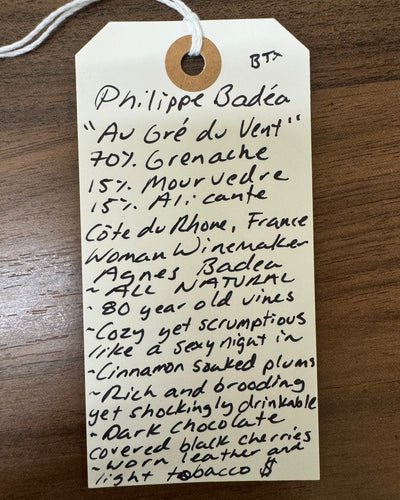 BTX
Philippe Badéa
"Au Gré du Vent"
70% Grenache
15% Mourvedre
15% Alicante
Côte du Rhone, France
Woman Winemaker
Agnes Badea
~ ALL NATURAL
- 80 year old vines
~ Cozy yet scrumptious
like a sexy night in
- Cinnamon soaked plums
~ Rich and brooding
yet shockingly drinkable
- Dark chocolate
covered black cherries
~ worn leather and
light tobacco $